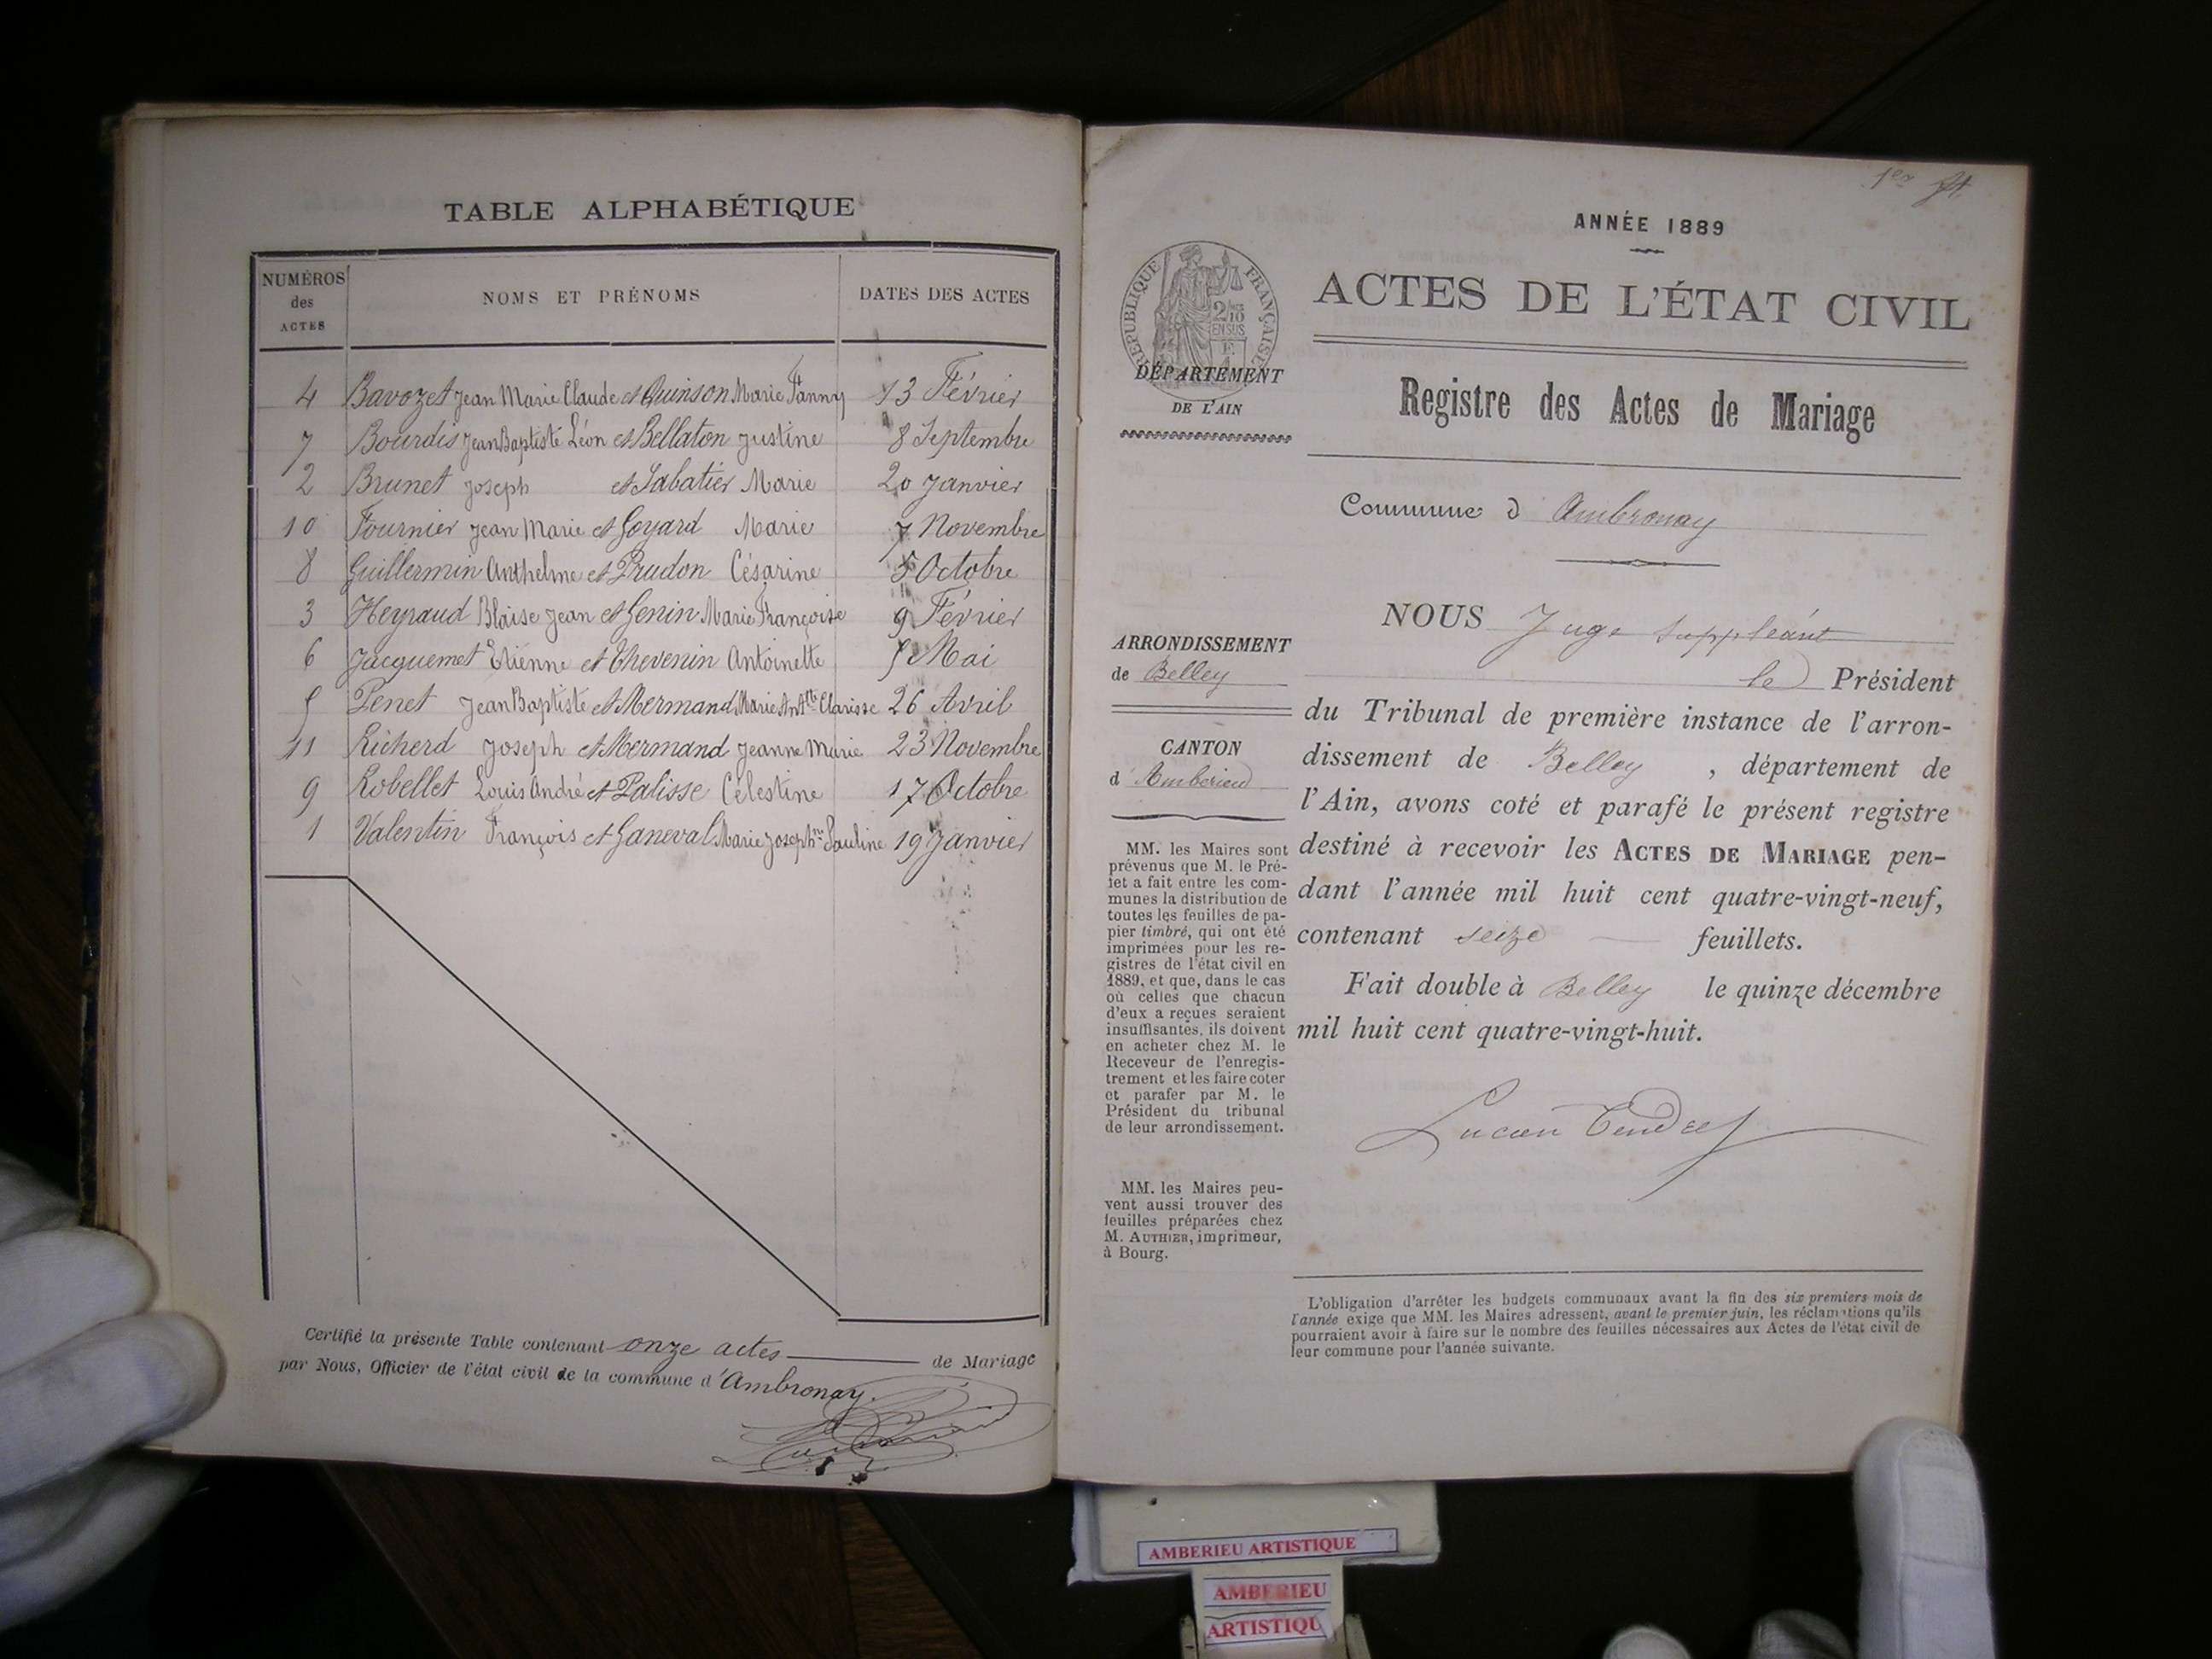 TABLE ALPHABÉTIQUE
NUMÉROS des ACTES
NOMS ET PRÉNOMS
DATES DES ACTES
4 Bavozet Jean Marie Claude et Quinson Marie Fanny 13 Février
7 Bourdis Jean Baptiste Léon et Bellaton Justine 8 Septembre
2 Brunet Joseph et Sabatier Marie 20 Janvier
10 Fournier Jean Marie et Goyard Marie 7 Novembre
8 Guillermin Anthelme et Prudon Césarine 5 Octobre
3 Heyraud Blaise Jean et Genin Marie Françoise 9 Février
6 Jacquemet Etienne et Thevenin Antoinette 5 Mai
5 Penet Jean Baptiste et Mermand Marie Antte Clarisse 26 Avril
11 Richerd Joseph et Mermand Jeanne Marie 23 Novembre
9 Robellet Louis André et Palisse Célestine 17 Octobre
1 Valentin François et Ganeval Marie Josephne Pauline 19 Janvier
Certifié la présente Table contenant onze actes de Mariage
par Nous, Officier de l'état civil de la commune d'Ambronay.
1er
ANNÉE 1889
RÉPUBLIQUE FRANÇAISE
2/10
EN SUS
DÉPARTEMENT
DE L'AIN
ACTES DE L'ÉTAT CIVIL
Registre des Actes de Mariage
Commune d'Ambronay
ARRONDISSEMENT
de Belley
CANTON
d'Ambérieu
MM. les Maires sont
prévenus que M. le Pré-
fet a fait entre les com-
munes la distribution de
toutes les feuilles de pa-
pier timbré, qui ont été
imprimées pour les re-
gistres de l'état civil en
1889, et que, dans le cas
où celles que chacun
d'eux a reçues seraient
insuffisantes, ils doivent
en acheter chez M. le
Receveur de l'enregis-
trement et les faire coter
et parafer par M. le
Président du tribunal
de leur arrondissement.
MM. les Maires peu-
vent aussi trouver des
feuilles préparées chez
M. AUTHIER, imprimeur,
à Bourg.
NOUS Juge suppléant
le Président
du Tribunal de première instance de l'arron-
dissement de Belley, département de
l'Ain, avons coté et parafé le présent registre
destiné à recevoir les ACTES DE MARIAGE pen-
dant l'année mil huit cent quatre-vingt-neuf,
contenant seize feuillets.
Fait double à Belley le quinze décembre
mil huit cent quatre-vingt-huit.
Lucien Tendret
L'obligation d'arrêter les budgets communaux avant la fin des six premiers mois de
l'année exige que MM. les Maires adressent, avant le premier juin, les réclamations qu'ils
pourraient avoir à faire sur le nombre des feuilles nécessaires aux Actes de l'état civil de
leur commune pour l'année suivante.
AMBERIEU ARTISTIQUE
AMBERIEU
ARTISTIQU